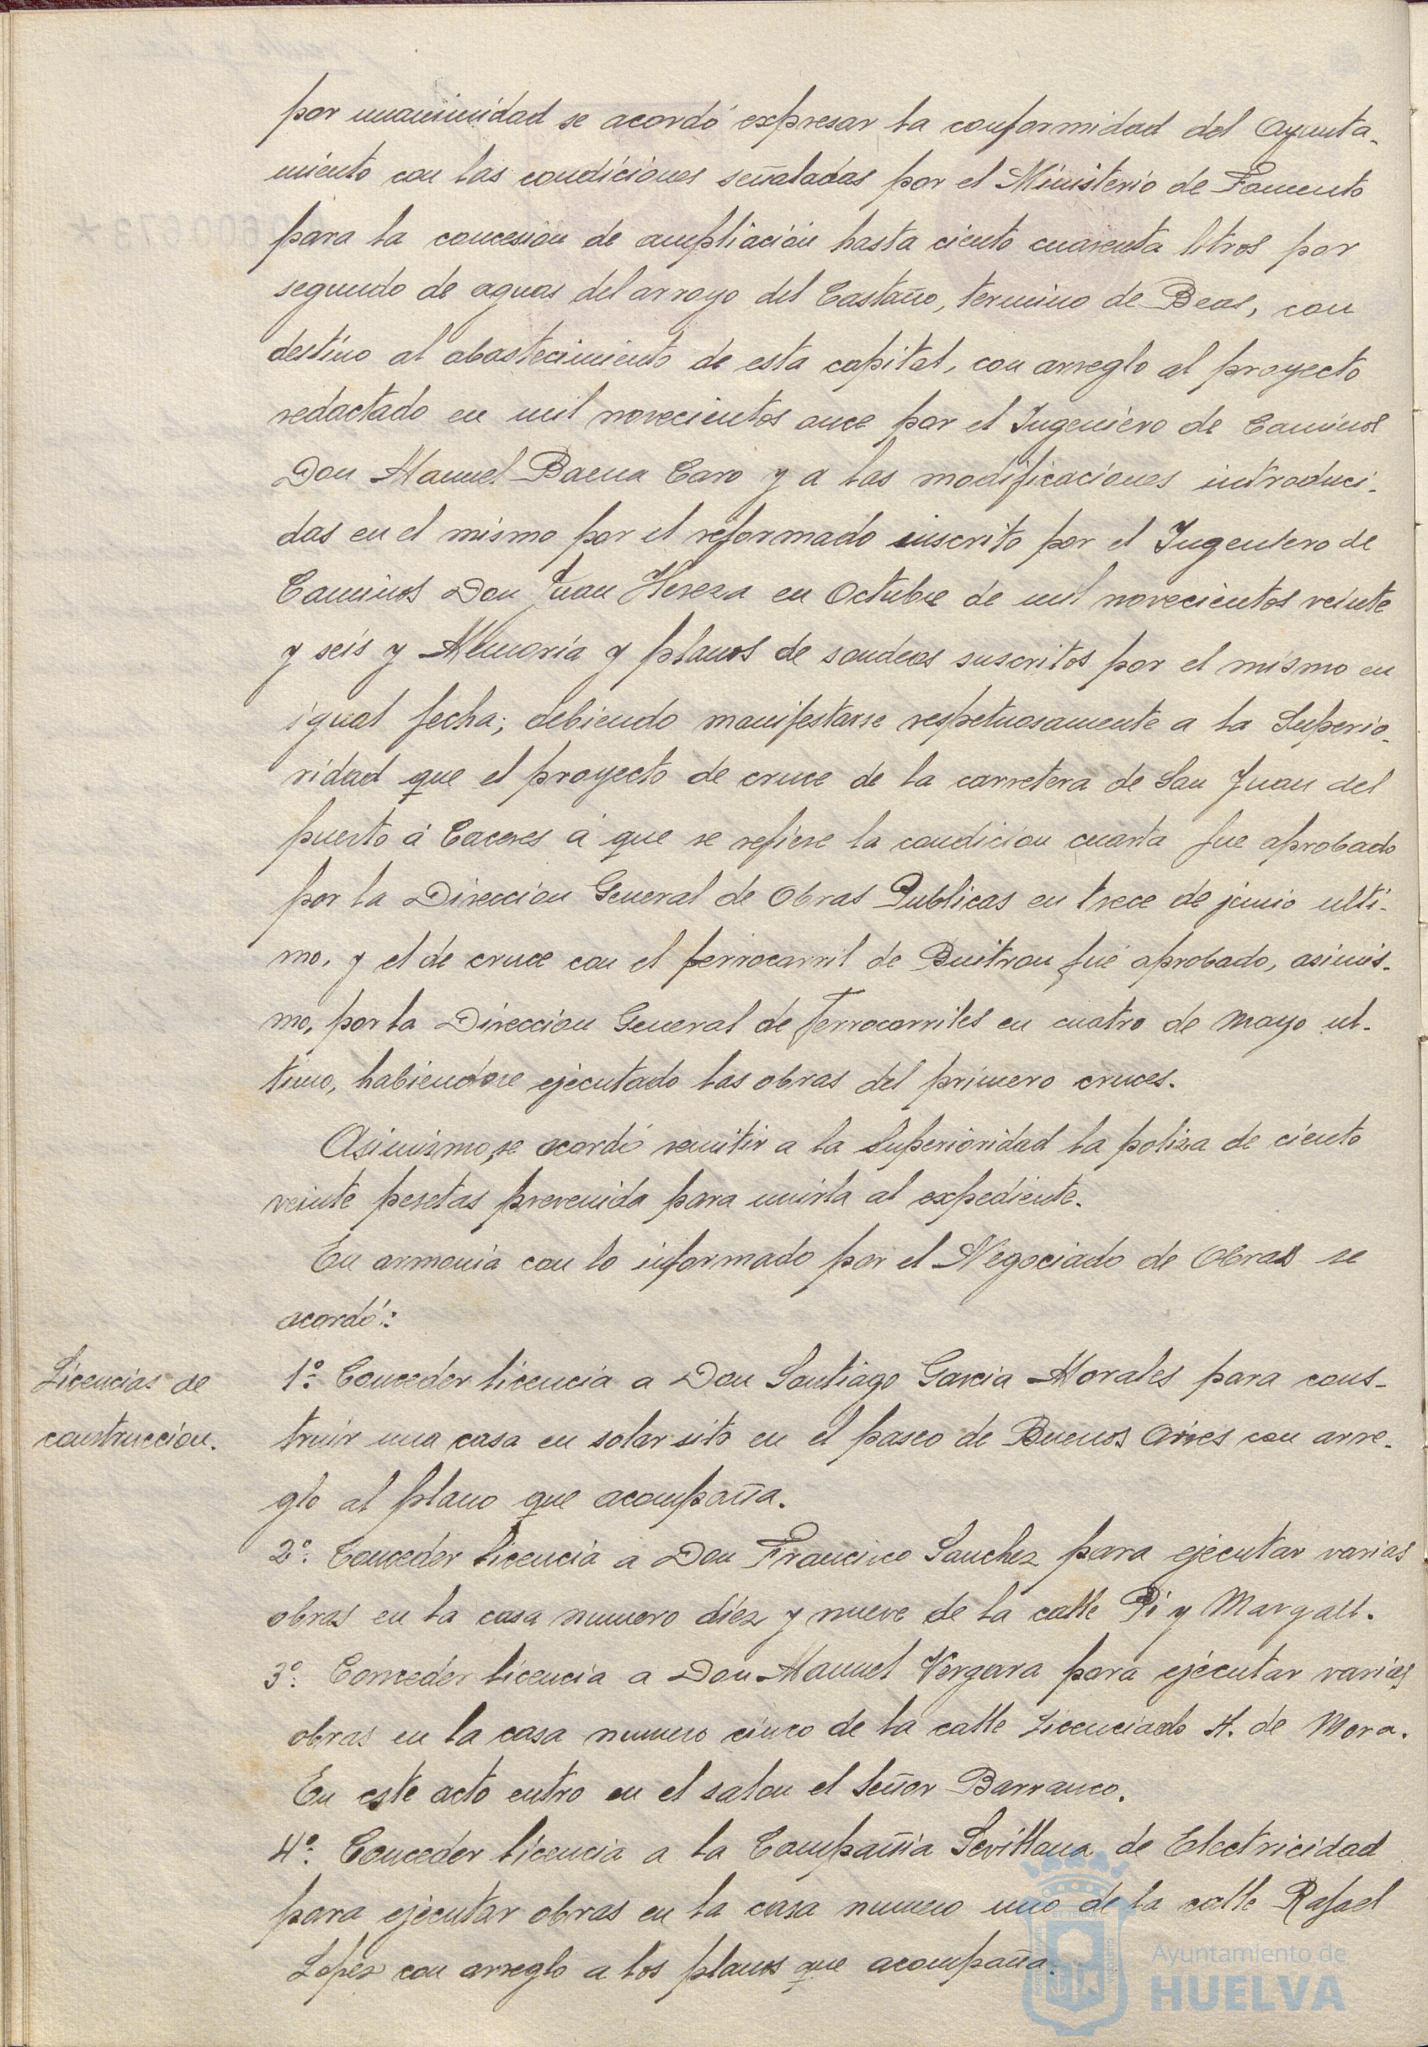 por unanimidad se acordó expresar la conformidad del Ayunta-
miento con las condiciones señaladas por el Ministerio de Fomento
para la concesion de ampliación hasta ciento cuarenta litros por
segundo de aguas del arroyo del Castaño, termino de Beas, con
destino al abastecimiento de esta capital, con arreglo al proyecto
redactado en mil novecientos once por el Ingeniero de Caminos
Don Manuel Baena Caro y a las modificaciones introduci-
das en el mismo por el reformado suscrito por el Ingeniero de
Caminos Don Juan Hereza en Octubre de mil novecientos veinte
y seis y Memoria y planos de sondeos suscritos por el mismo en
igual fecha; debiendo manifestarse respetuosamente a la Superio-
ridad que el proyecto de cruce de la carretera de San Juan del
puerto á Caceres á que se refiere la condicion cuarta fue aprobado
por la Direccion General de Obras Publicas en trece de junio ulti-
mo, y el de cruce con el ferrocarril de Buitron fué aprobado, asimis-
mo, por la Direccion General de Ferrocarriles en cuatro de Mayo ul-
timo, habiendose ejecutado las obras del primero cruces.
Asimismo, se acordó remitir a la Superioridad la poliza de ciento
veinte pesetas prevenida para unirla al expediente.
En armonia con lo informado por el Negociado de Obras se
acordó:
Licencias de
construccion.
1º. Conceder licencia a Don Santiago Garcia Morales para cons-
truir una casa en solar sito en el paseo de Buenos Aires con arre-
glo al plano que acompaña.
2º. Conceder licencia a Don Francisco Sanchez para ejecutar varias
obras en la casa numero diez y nueve de la calle Pi y Margall.
3º. Conceder licencia a Don Manuel Vergara para ejecutar varias
obras en la casa numero cinco de la calle Licenciado A. de Mora.
En este acto entro en el salon el Señor Barranco.
4º. Conceder licencia a la Compañia Sevillana de Electricidad
para ejecutar obras en la casa numero uno de la calle Rafael
Lopez con arreglo a los planos que acompaña.
Ayuntamiento de
HUELVA